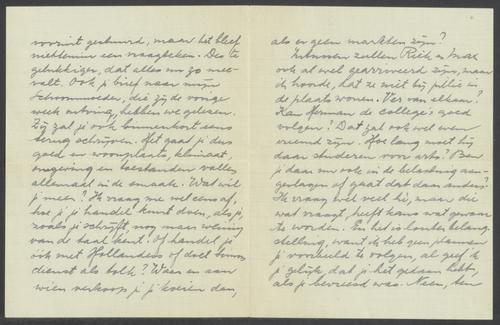 vooruit gestuurd, maar het bleef
niettemin een vraagteken. Des te
gelukkiger, dat alles nu zo mee-
valt. Ook je brief naar mijn
schoonmoeder, die zij de vorige
week ontving, hebben we gelezen.
Zij zal je ook binnenkort eens
terug schrijven. Het gaat je dus
goed en woonplaats, klimaat,
omgeving en toestanden vallen
allemaal in de smaak. Wat wil
je meer? Ik vraag me wel eens af,
hoe je, je handel kunt doen, als je,
zoals je schrijft nog maar weinig
van de taal kent. Of handel je
ook met Hollanders of doet
dienst als tolk? Waar en aan
wien verkoop je je koeien dan,
als er geen markten zijn?
Intussen zullen Riek en Max
ook al wel gearriveerd zijn, maar
ik hoorde, dat ze niet bij jullie in
de plaats wonen. Ver van elkaar?
Kan Herman de college's goed
volgen? Dat zal ook wel even
vreemd zijn. Hoe lang moet hij
daar studeren voor arts? Ben
je daar nu ook in de belasting aan-
geslagen of gaat dat daar anders?
Ik vraag wel veel hé, maar die
wat vraagt, heeft kans wat gewaar
te worden. En het is louter belang-
stelling, want ik heb geen plannen
je voorbeeld te volgen, al geef ik
je gelijk, dat je het gedaan hebt,
als je bevreesd was. Neen, ten